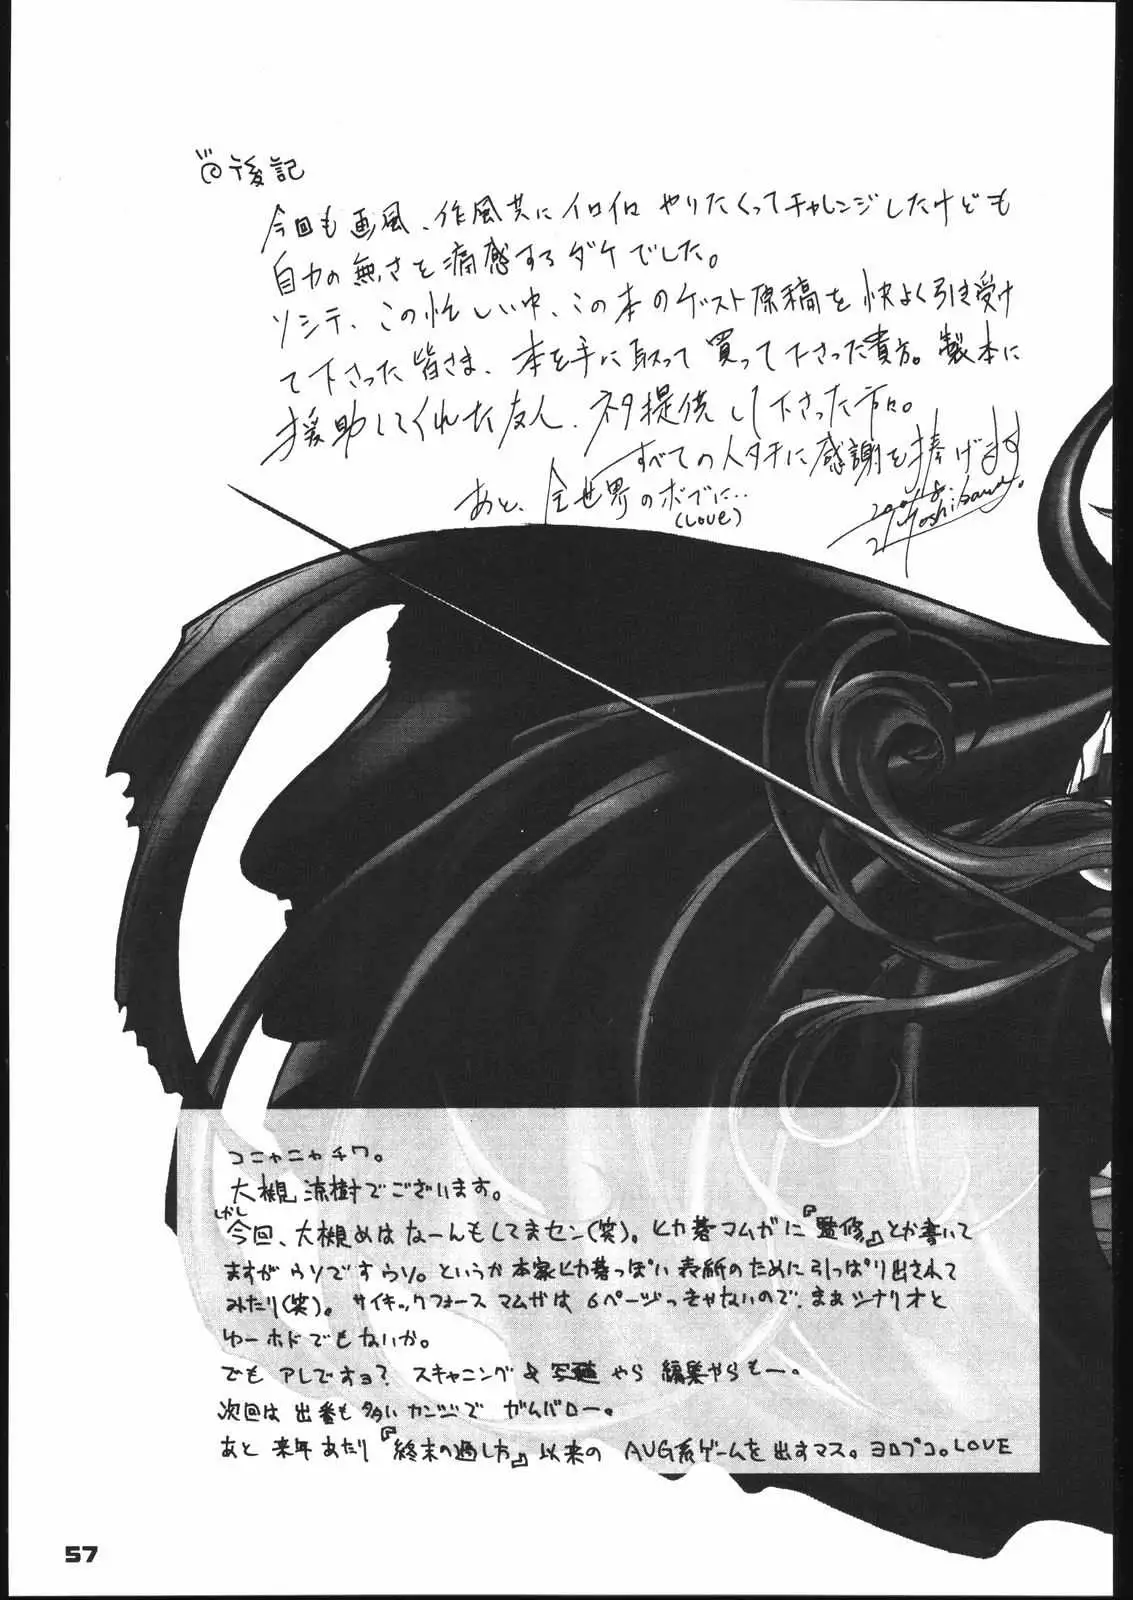 後記
今回も画風、作風共にイロイロやりたくってチャレンジしたけども
自力の無さを痛感するダケでした。
ソシテ、この忙しい中、この本のゲスト原稿を快よく引き受け
て下さった皆さま、本を手に取って買って下さった貴方。製本に
援助してくれた友人、ネタ提供して下さった方々。
すべての人タチに感謝を捧げます
あと、全世界のボブに…
(LOVE)
コニャニャチワ。
大槻涼樹でございます。
しがし
今回、大槻めはなーんもしてませセン(笑)。ヒカ碁マムガに『監修』とか書いて
ますがウソですウソ。というか本家ヒカ碁っぽい表紙のために引っぱり出されて
みたり(笑)。サイキックフォースマムガは6ページっきゃないので、まぁシナリオと
ゆーホドでもないか。
でもアレですョ？スキャニング&写植やら編集やらもー。
次回は出番も多いカンジでガムバロー。
あと来年あたり『終末の過し方』以来のAVG系ゲームを出すマス。ヨロプコ。LOVE
57